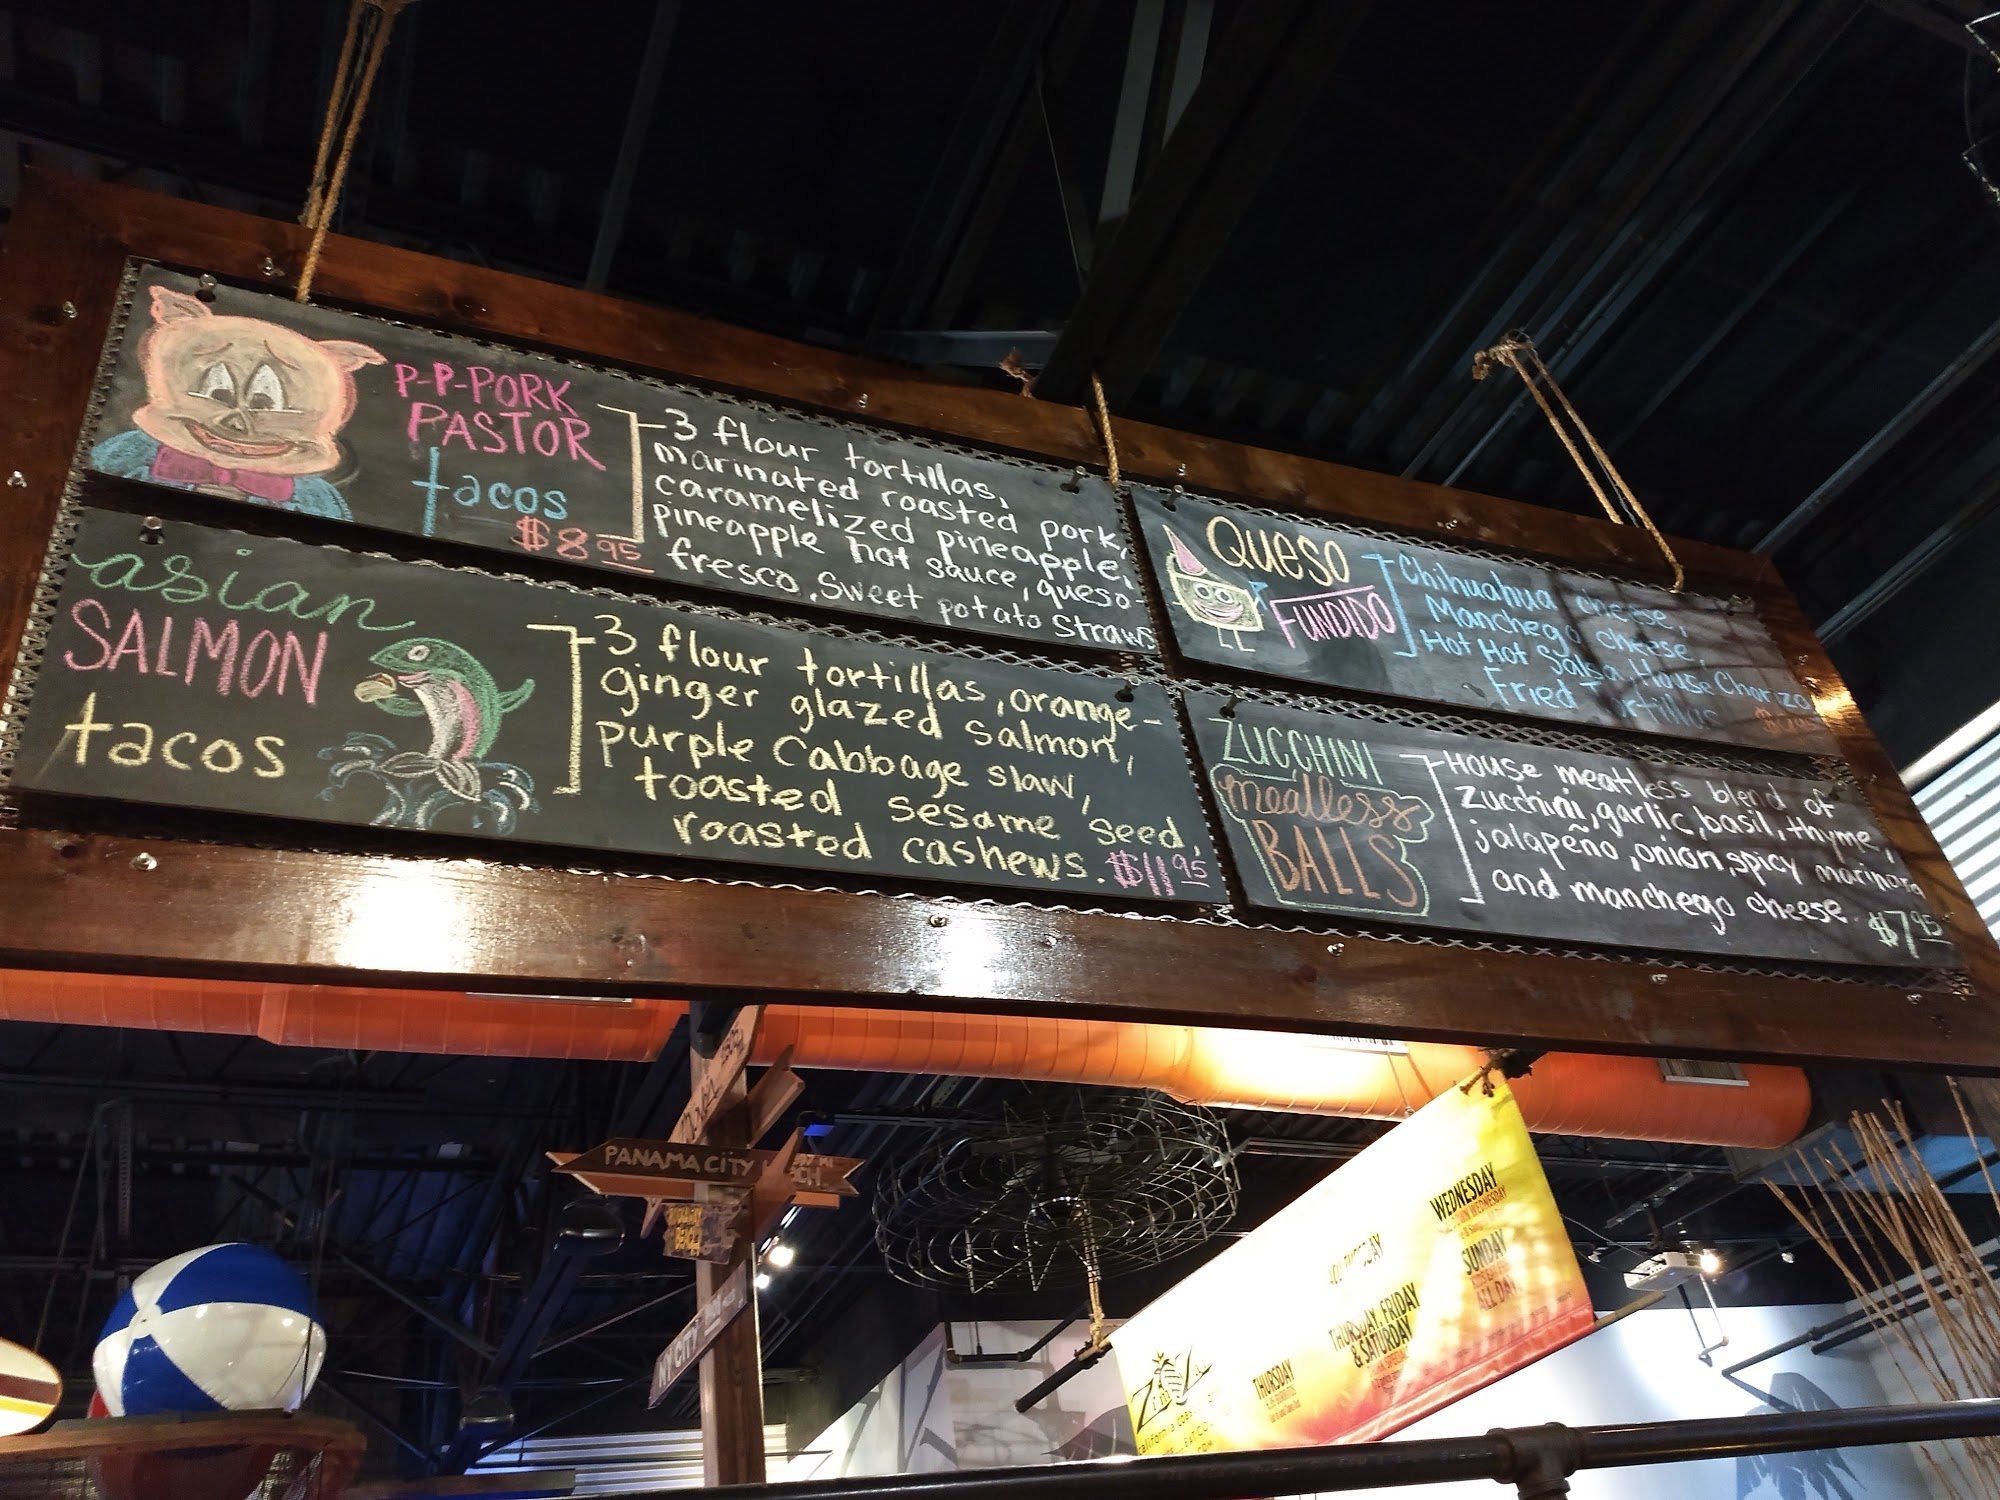 P-P-PORK
PASTOR
tacos
$8.95
3 flour tortillas,
marinated roasted pork,
caramelized pineapple,
pineapple hot sauce, queso
fresco, sweet potato straws
asian
SALMON
tacos
3 flour tortillas, orange-
ginger glazed salmon,
purple cabbage slaw,
toasted sesame seed,
roasted cashews. $11.95
QUESO
FUNDIDO
Chihuahua cheese,
Manchego cheese,
Hot Hot Salsa, House Chorizo
Fried Tortillas
ZUCCHINI
meatless
BALLS
House meatless blend of
zucchini, garlic, basil, thyme,
jalapeño, onion, spicy marinara
and manchego cheese. $7.95
PANAMA CITY
NY CITY
WEDNESDAY
SUNDAY
ALL DAY
THURSDAY, FRIDAY
& SATURDAY
THURSDAY